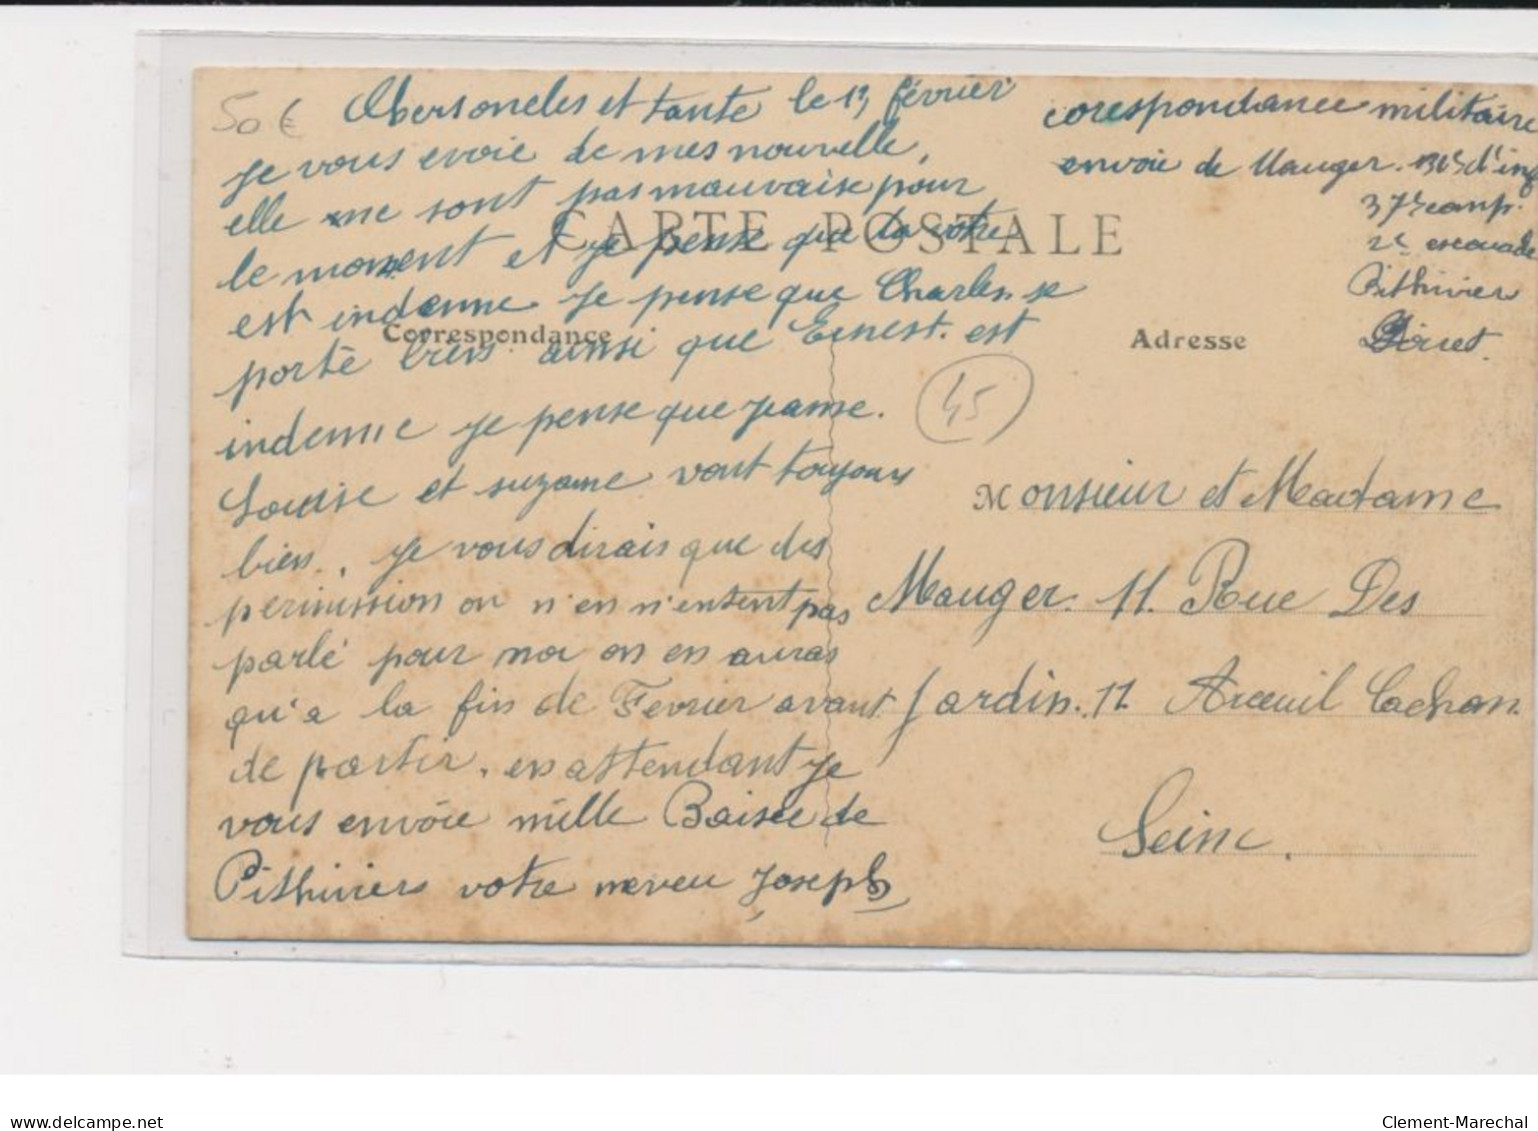 50 €
Chers oncles et tante le 1er février
je vous evoie de mes nouvelle,
elle me sont pas mauvaise pour
le moment et je pense que la votre
est indenne je pense que Charles se
porte bien ainsi que Ernest. est
indenne je pense que jeanne.
Louise et suzanne vont toujours
bien. je vous dirais que des
permission on n'en n'entent pas
parlé pour moi on en auras
qu'a la fin de Fevrier avant
de partir. en attendant je
vous envoie mille Baisée de
Pithiviers votre neveu Joseph
CARTE POSTALE
Correspondance
45
corespondance militaire
envoie de Mauger. 131e d'inf
37e comp.
2e escouade
Pithivier
Loiret.
Adresse
Monsieur et Madame
Mauger. 11. Rue Des
Jardin. 11 Arceuil Cachan
Seine.
delcampe.net
Clement-Marechal